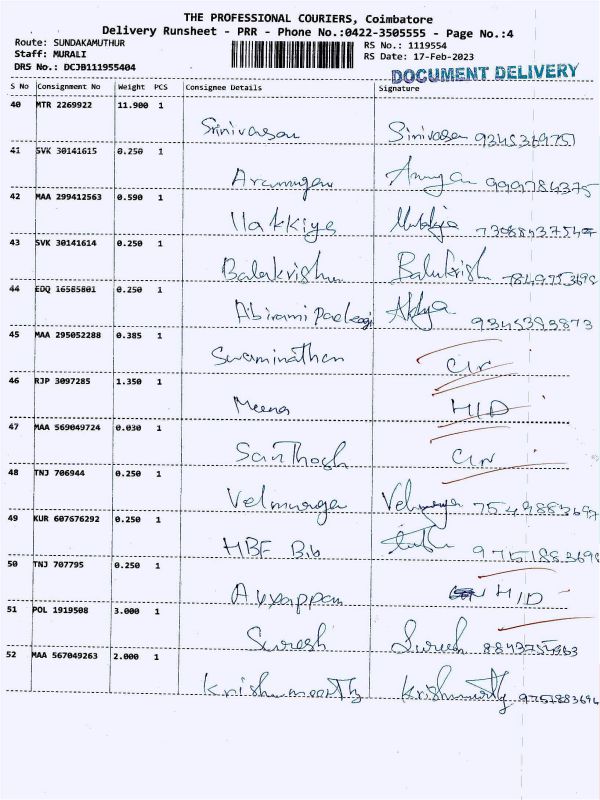 THE PROFESSIONAL COURIERS, Coimbatore
Delivery Runsheet - PRR - Phone No.:0422-3505555 - Page No.:4
Route: SUNDAKAMUTHUR
RS No.: 1119554
Staff: MURALI
RS Date: 17-Feb-2023
DRS No.: DCJB111955404
DOCUMENT DELIVERY
S No Consignment No Weight PCS Consignee Details Signature
40 MTR 2269922 11.900 1
Srinivasan Srinivasan 9345369751
41 SVK 30141615 0.250 1
Arumugam 9999784375
42 MAA 299412563 0.590 1
Ilakkiya
43 SVK 30141614 0.250 1
Balakrishnan Balakrish
44 EDQ 16585801 0.250 1
Abirami 9345393873
45 MAA 295052288 0.385 1
Swaminathan
46 RJP 3097285 1.350 1
Meena H/D
47 MAA 569049724 0.030 1
Santhosh
48 TNJ 706944 0.250 1
Velmurga Velmurga
49 KUR 607676292 0.250 1
HBF
50 TNJ 707795 0.250 1
Ayyappan H/D
51 POL 1919508 3.000 1
Suresh Suresh
52 MAA 567049263 2.000 1
Krishnamoorthy